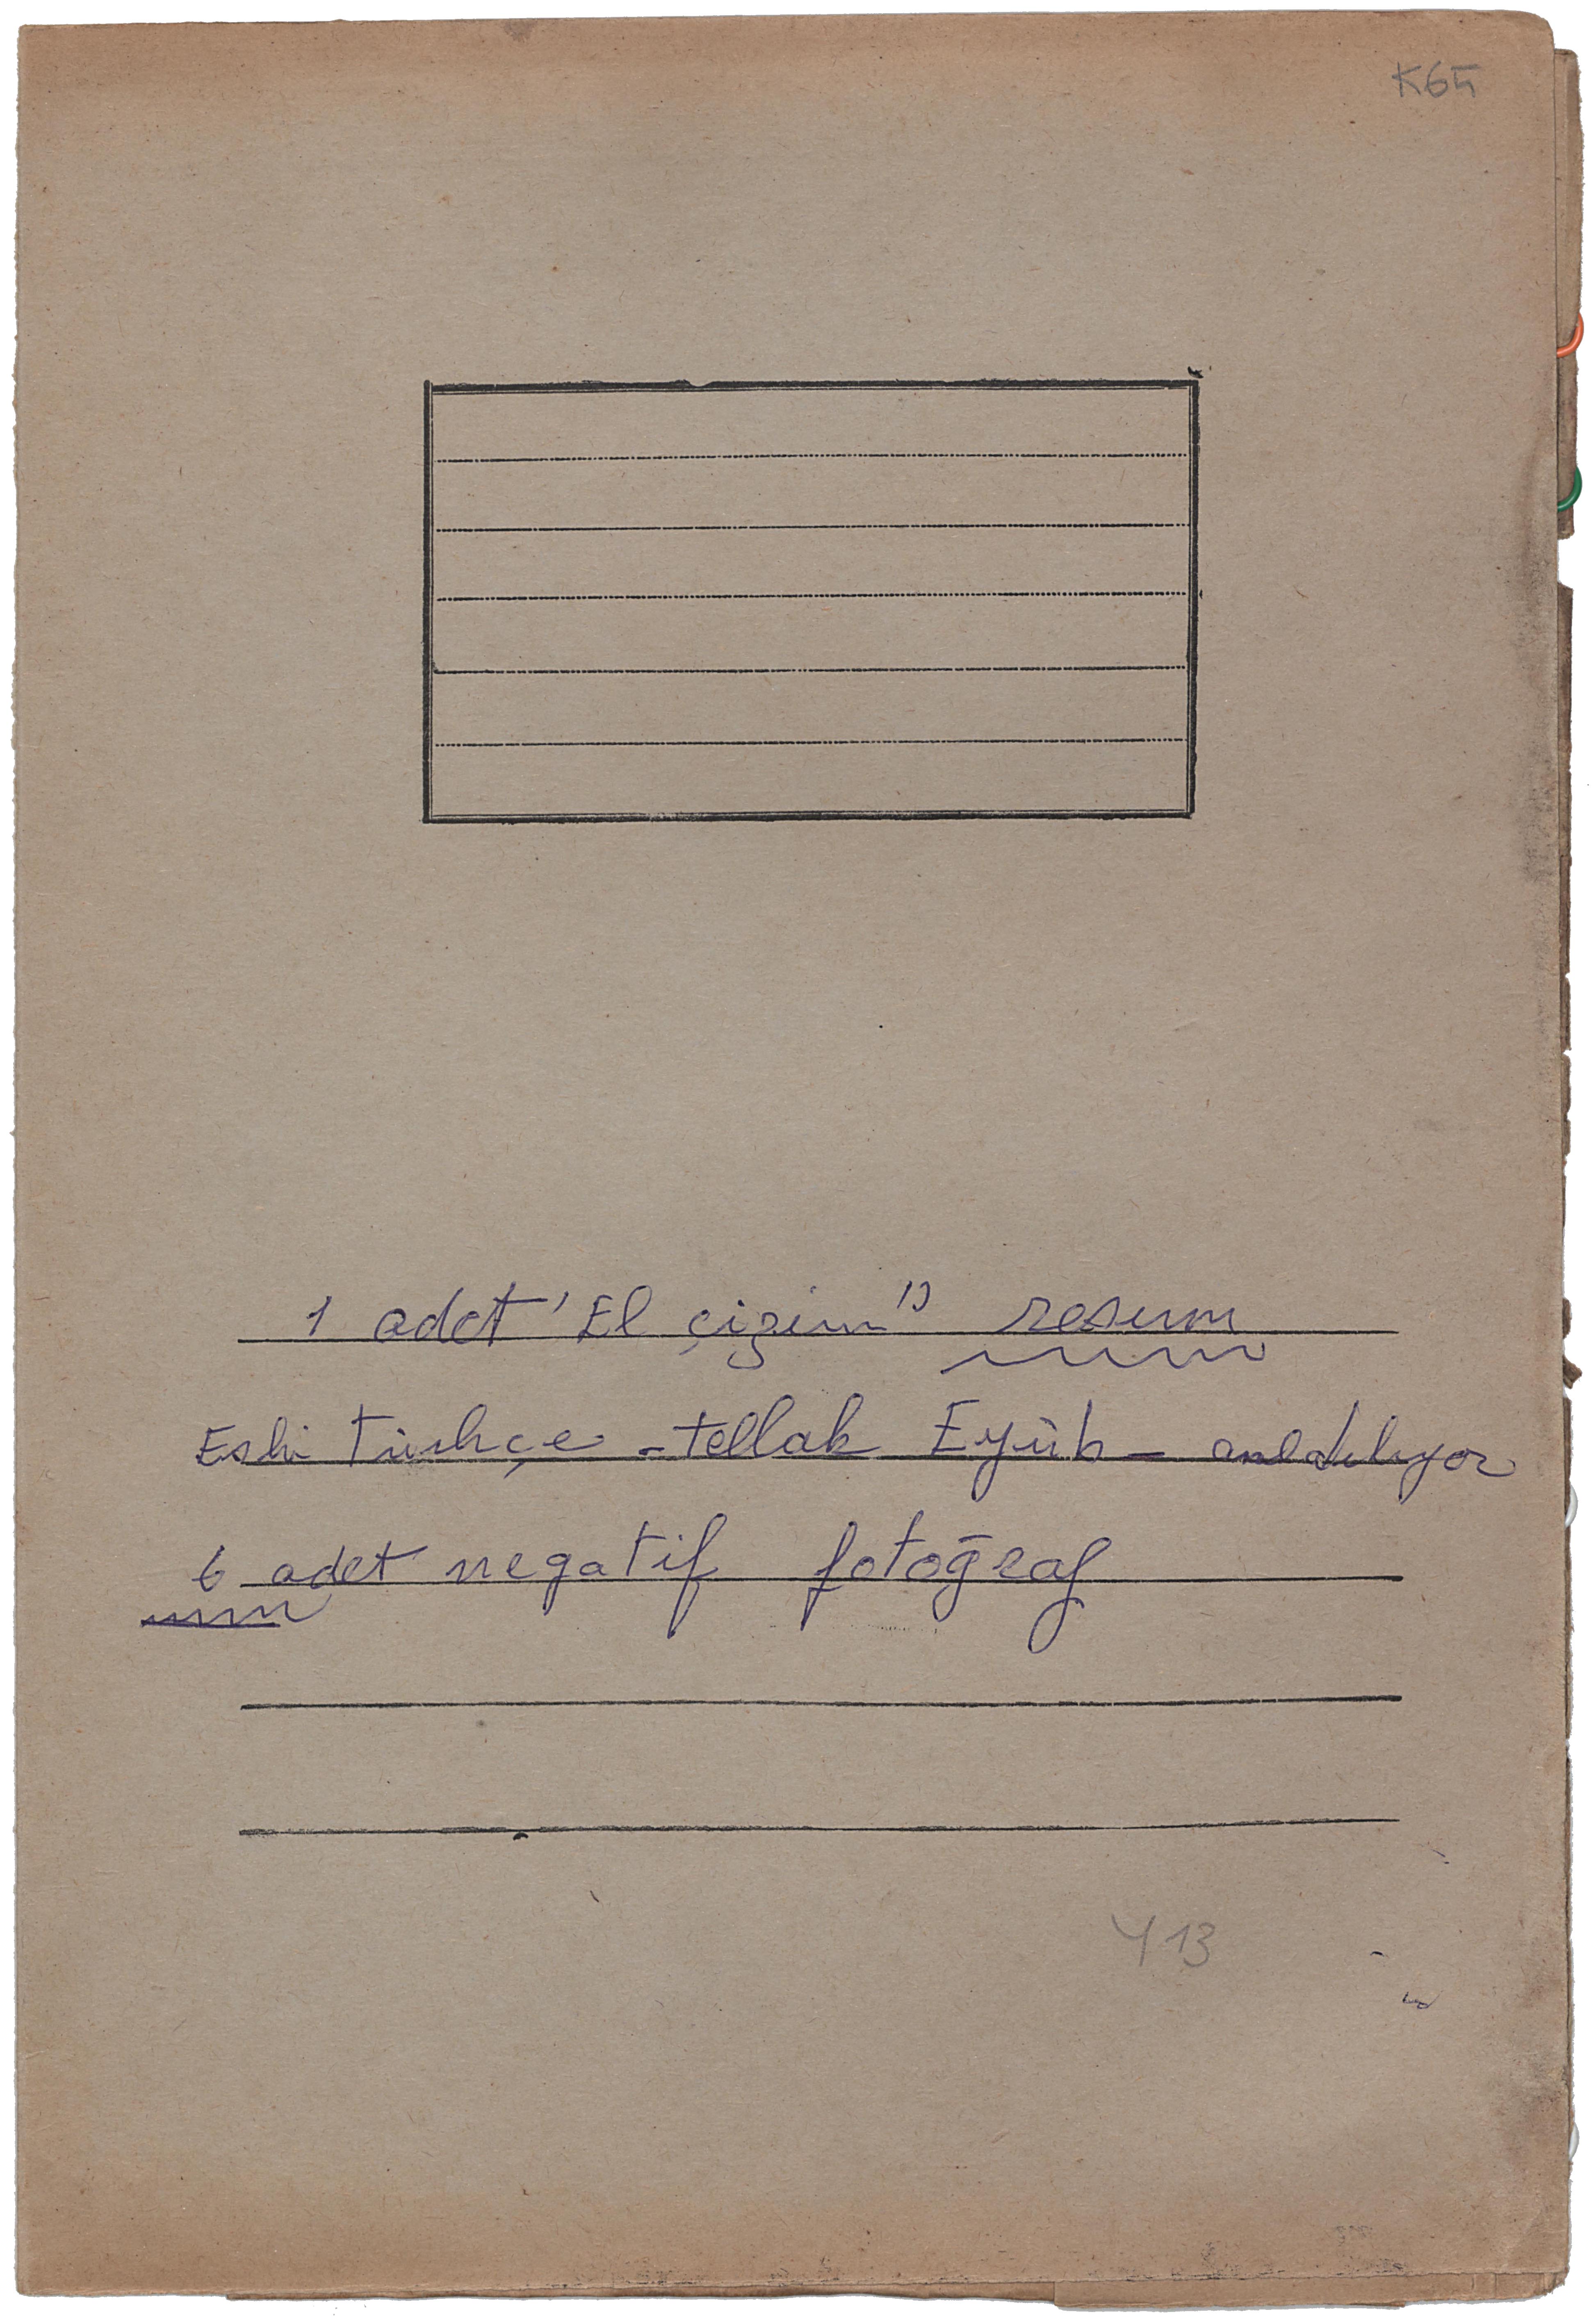 K65
1 adet 'El çizim" resim
Eski Türkçe - tellak Eyüb -
6 adet negatif fotoğraf
413